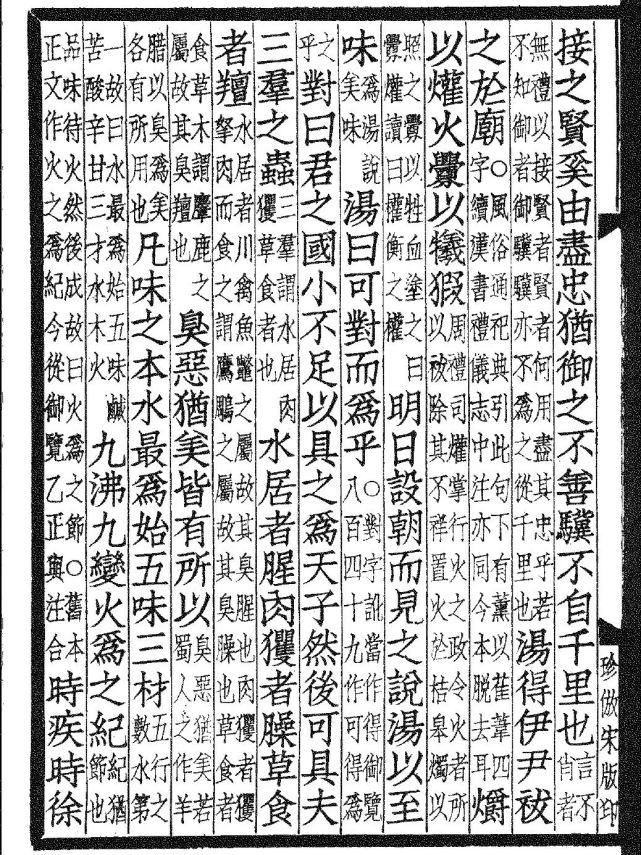 接之賢奚由盡忠猶御之不善驥不自千里也言不肖者
無禮以接賢者賢者何用盡其忠乎若不知御者御驥驥亦不爲之從千里也湯得伊尹祓
之於廟○風俗通祀典引此句下有薰以萑葦四字續漢書禮儀志中注亦同今本脫去耳爝
以爟火釁以犧猳周禮司爟掌行火之政令火者所以祓除其不祥置火於桔皋燭以
照之釁以牲血塗之曰釁爟讀曰權衡之權明日設朝而見之說湯以至
味爲湯說美味湯曰可對而爲乎○對字訛當作得御覽八百四十九作可得爲
之乎對曰君之國小不足以具之爲天子然後可具夫
三羣之蟲三羣謂水居肉玃草食者也水居者腥肉玃者臊草食
者羶水居者川禽魚鼈之屬故其臭腥也肉玃者玃拏肉而食之謂鷹鵰之屬故其臭臊也草食者
食草木謂麞鹿之屬故其臭羶也臭惡猶美皆有所以臭惡猶美若蜀人之作羊
腊以臭爲美各有所用也凡味之本水最爲始五味三材五行之數水第
一故曰水最爲始五味鹹苦酸辛甘三才水木火九沸九變火爲之紀紀猶節也
品味待火然後成故曰火爲之節○舊本正文作火之爲紀今從御覽乙正與注合時疾時徐
珍倣宋版印